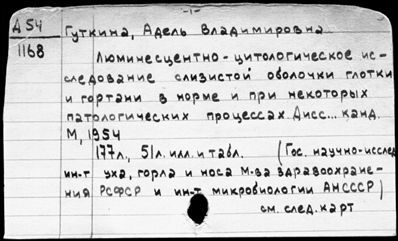 -1-
Д 54
1168
Гуткина, Адель Владимировна
Люминесцентно-цитологическое ис-
следование слизистой оболочки глотки
и гортани в норме и при некоторых
патологических процессах. Дисс... канд.
М, 1954
177л., 51л. илл. и табл. (Гос. научно-исслед
ин-т уха, горла и носа М-ва здравоохране-
ния РСФСР и ин-т микробиологии АНСССР)
см. след. карт